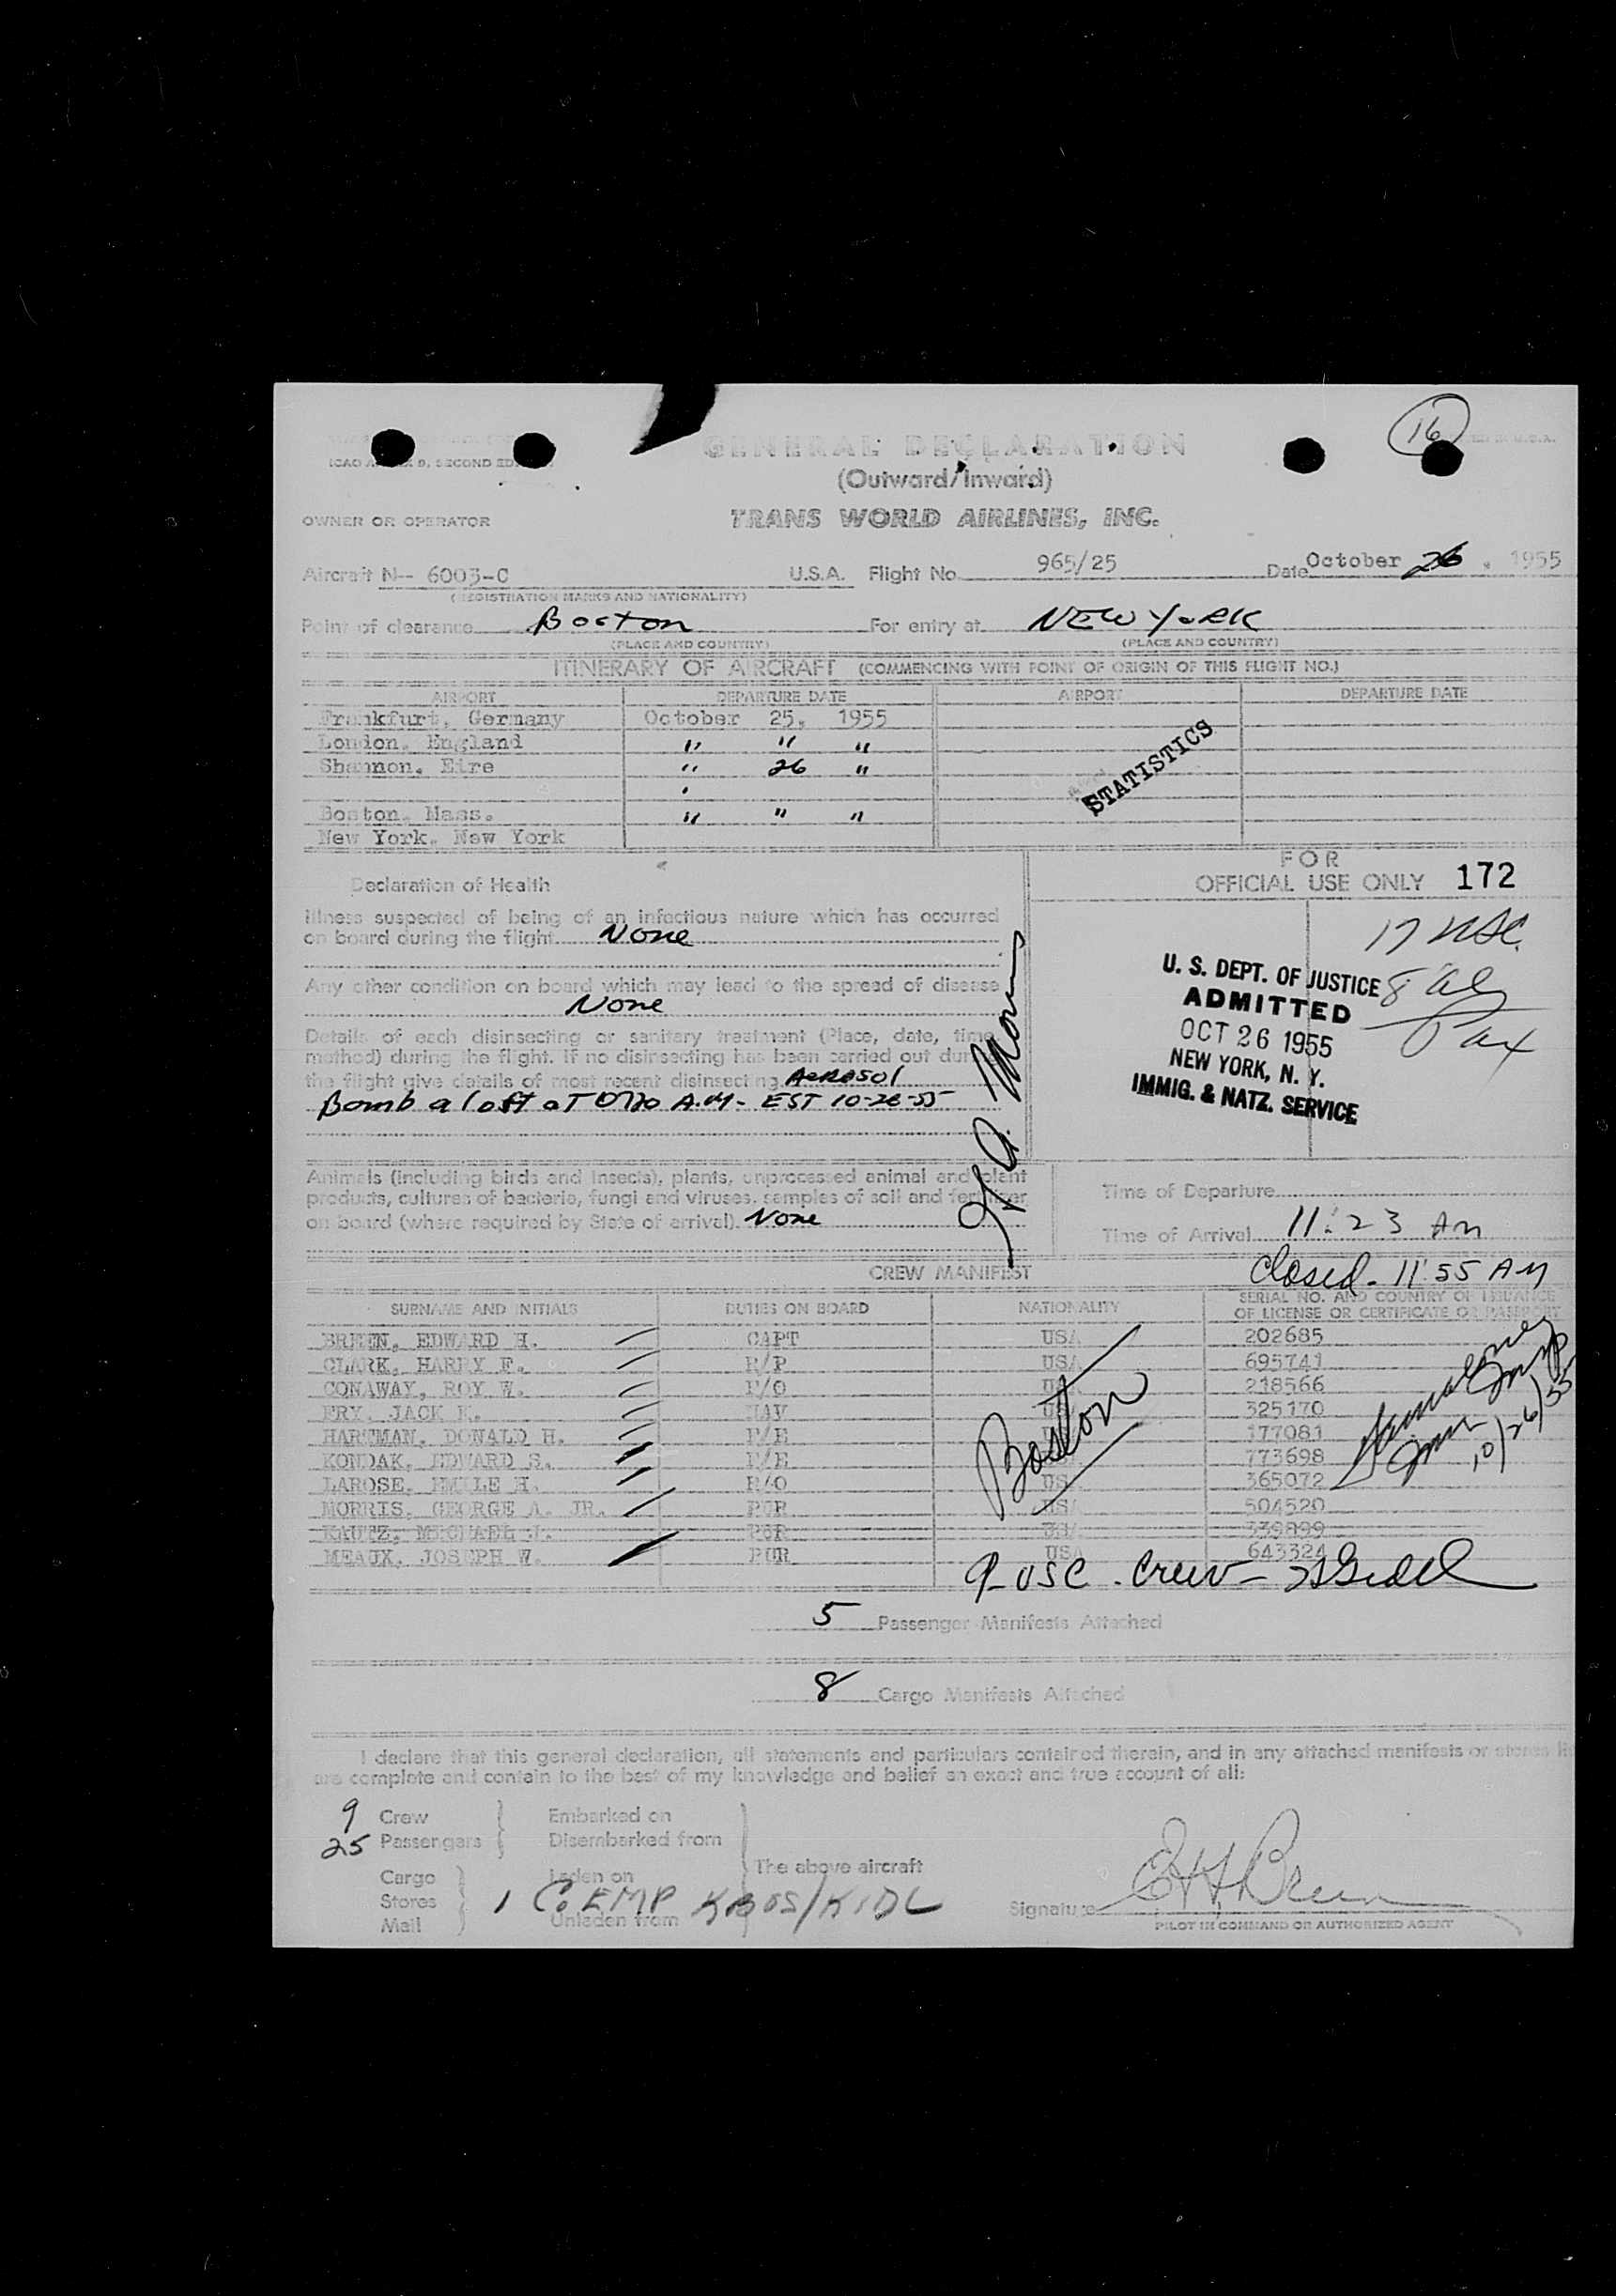 16
ICAO ANNEX 9, SECOND ED.
GENERAL DECLARATION
(Outward/Inward)
OWNER OR OPERATOR
TRANS WORLD AIRLINES, INC.
Aircraft N-- 6003-C U.S.A. Flight No. 965/25 Date October 26, 1955
(REGISTRATION MARKS AND NATIONALITY)
Point of clearance Boston For entry at NEW YORK
(PLACE AND COUNTRY) (PLACE AND COUNTRY)
ITINERARY OF AIRCRAFT (COMMENCING WITH POINT OF ORIGIN OF THIS FLIGHT NO.)
AIRPORT DEPARTURE DATE AIRPORT DEPARTURE DATE
Frankfurt, Germany October 25, 1955
London, England " " "
Shannon, Eire " 26 "
Boston, Mass. " " "
New York, New York
STATISTICS
FOR
OFFICIAL USE ONLY 172
Declaration of Health
Illness suspected of being of an infectious nature which has occurred
on board during the flight None
Any other condition on board which may lead to the spread of disease
None
Details of each disinsecting or sanitary treatment (Place, date, time
method) during the flight. If no disinsecting has been carried out during
the flight give details of most recent disinsecting. Aerosol
Bomb aloft at A.M- EST 10-26-55
17 USC
8 al
Pax
U. S. DEPT. OF JUSTICE
ADMITTED
OCT 26 1955
NEW YORK, N. Y.
IMMIG. & NATZ. SERVICE
Animals (including birds and insects), plants, unprocessed animal and plant
products, cultures of bacteria, fungi and viruses, samples of soil and fertilizer
on board (where required by State of arrival). None
Time of Departure
Time of Arrival 11:23 AM
Closed - 11:55 AM
CREW MANIFEST
SURNAME AND INITIALS DUTIES ON BOARD NATIONALITY SERIAL NO. AND COUNTRY OF ISSUANCE
OF LICENSE OR CERTIFICATE OR PASSPORT
BREEN, EDWARD H. CAPT USA 202685
CLARK, HARRY F. R/P USA 695741
CONAWAY, ROY W. F/O USA 218566
FRY, JACK K. NAV USA 325170
HARTMAN, DONALD H. F/E 177081
KONDAK, EDWARD S. F/E 773698
LAROSE, EMILE H. R/O USA 365072
MORRIS, GEORGE A. JR. PUR USA 504520
KAUTZ, MICHAEL J. PUR USA 339899
MEAUX, JOSEPH W. PUR USA 643324
Boston
10/26/55
9 - USC - Crew -
5 Passenger Manifests Attached
8 Cargo Manifests Attached
I declare that this general declaration, all statements and particulars contained therein, and in any attached manifests or stores
are complete and contain to the best of my knowledge and belief an exact and true account of all:
9 Crew Embarked on
25 Passengers Disembarked from
The above aircraft
Cargo Laden on
Stores 1 Co EMP KBOS/KIDL
Mail Unladen from
Signature EH Breen
PILOT IN COMMAND OR AUTHORIZED AGENT